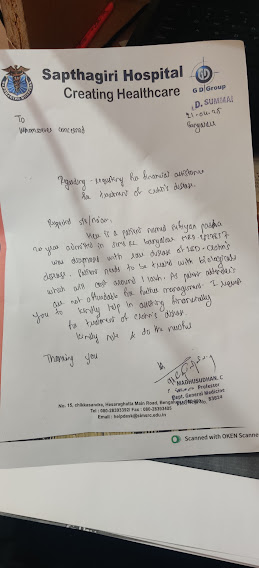 Sapthagiri Hospital
Creating Healthcare
G D Group
D. SUMMAI
To
whomsoever concerned
Bangalore
Regarding - requesting for financial assistance
for treatment of crohn's disease.
Respected sir/madam.
Here is a patient named
20 year admitted in
was diagnosed with rare disease of IBD - crohn's
disease. Patient needs to be treated with biologicals
which will cost around 1 lakh. As patient attenders
are not affordable for further management. I request
you to kindly help in assisting financially
for treatment of crohn's disease.
kindly note & do the needful
Thanking you
MADHUSUDHAN. C
Professor
Dept. General Medicine
No. 15, chikkasandra, Hesaraghatta Main Road, Bengaluru
Tel : 080-28393392/ Fax : 080-28393405
Email : helpdesk@simsrc.edu.in
Scanned with OKEN Scanner